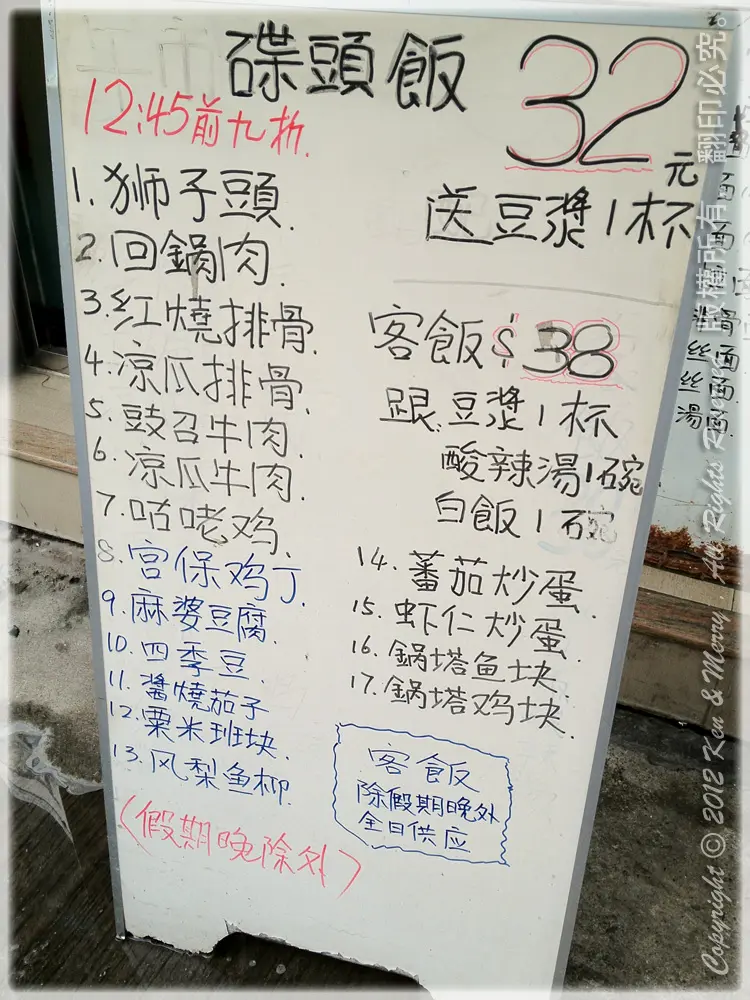 碟頭飯 32元
12:45前九折.
送豆漿1杯
1.狮子頭.
2.回鍋肉.
3.红燒排骨.
4.凉瓜排骨.
5.豉召牛肉.
6.凉瓜牛肉.
7.咕咾鸡.
8.宫保鸡丁.
9.麻婆豆腐.
10.四季豆.
11.醬燒茄子
12.粟米班块.
13.风梨鱼柳.
(假期晚除外)
客飯$38
跟豆漿1杯
酸辣湯1碗
白飯1碗
14.蕃茄炒蛋.
15.虾仁炒蛋.
16.鍋塔鱼块.
17.鍋塔鸡块.
客飯
除假期晚外
全日供应
面
面
骨面
丝面
丝面.
湯面.
版權所有 翻印必究。
Copyright © 2012 Ken & Merry All Rights Reserved